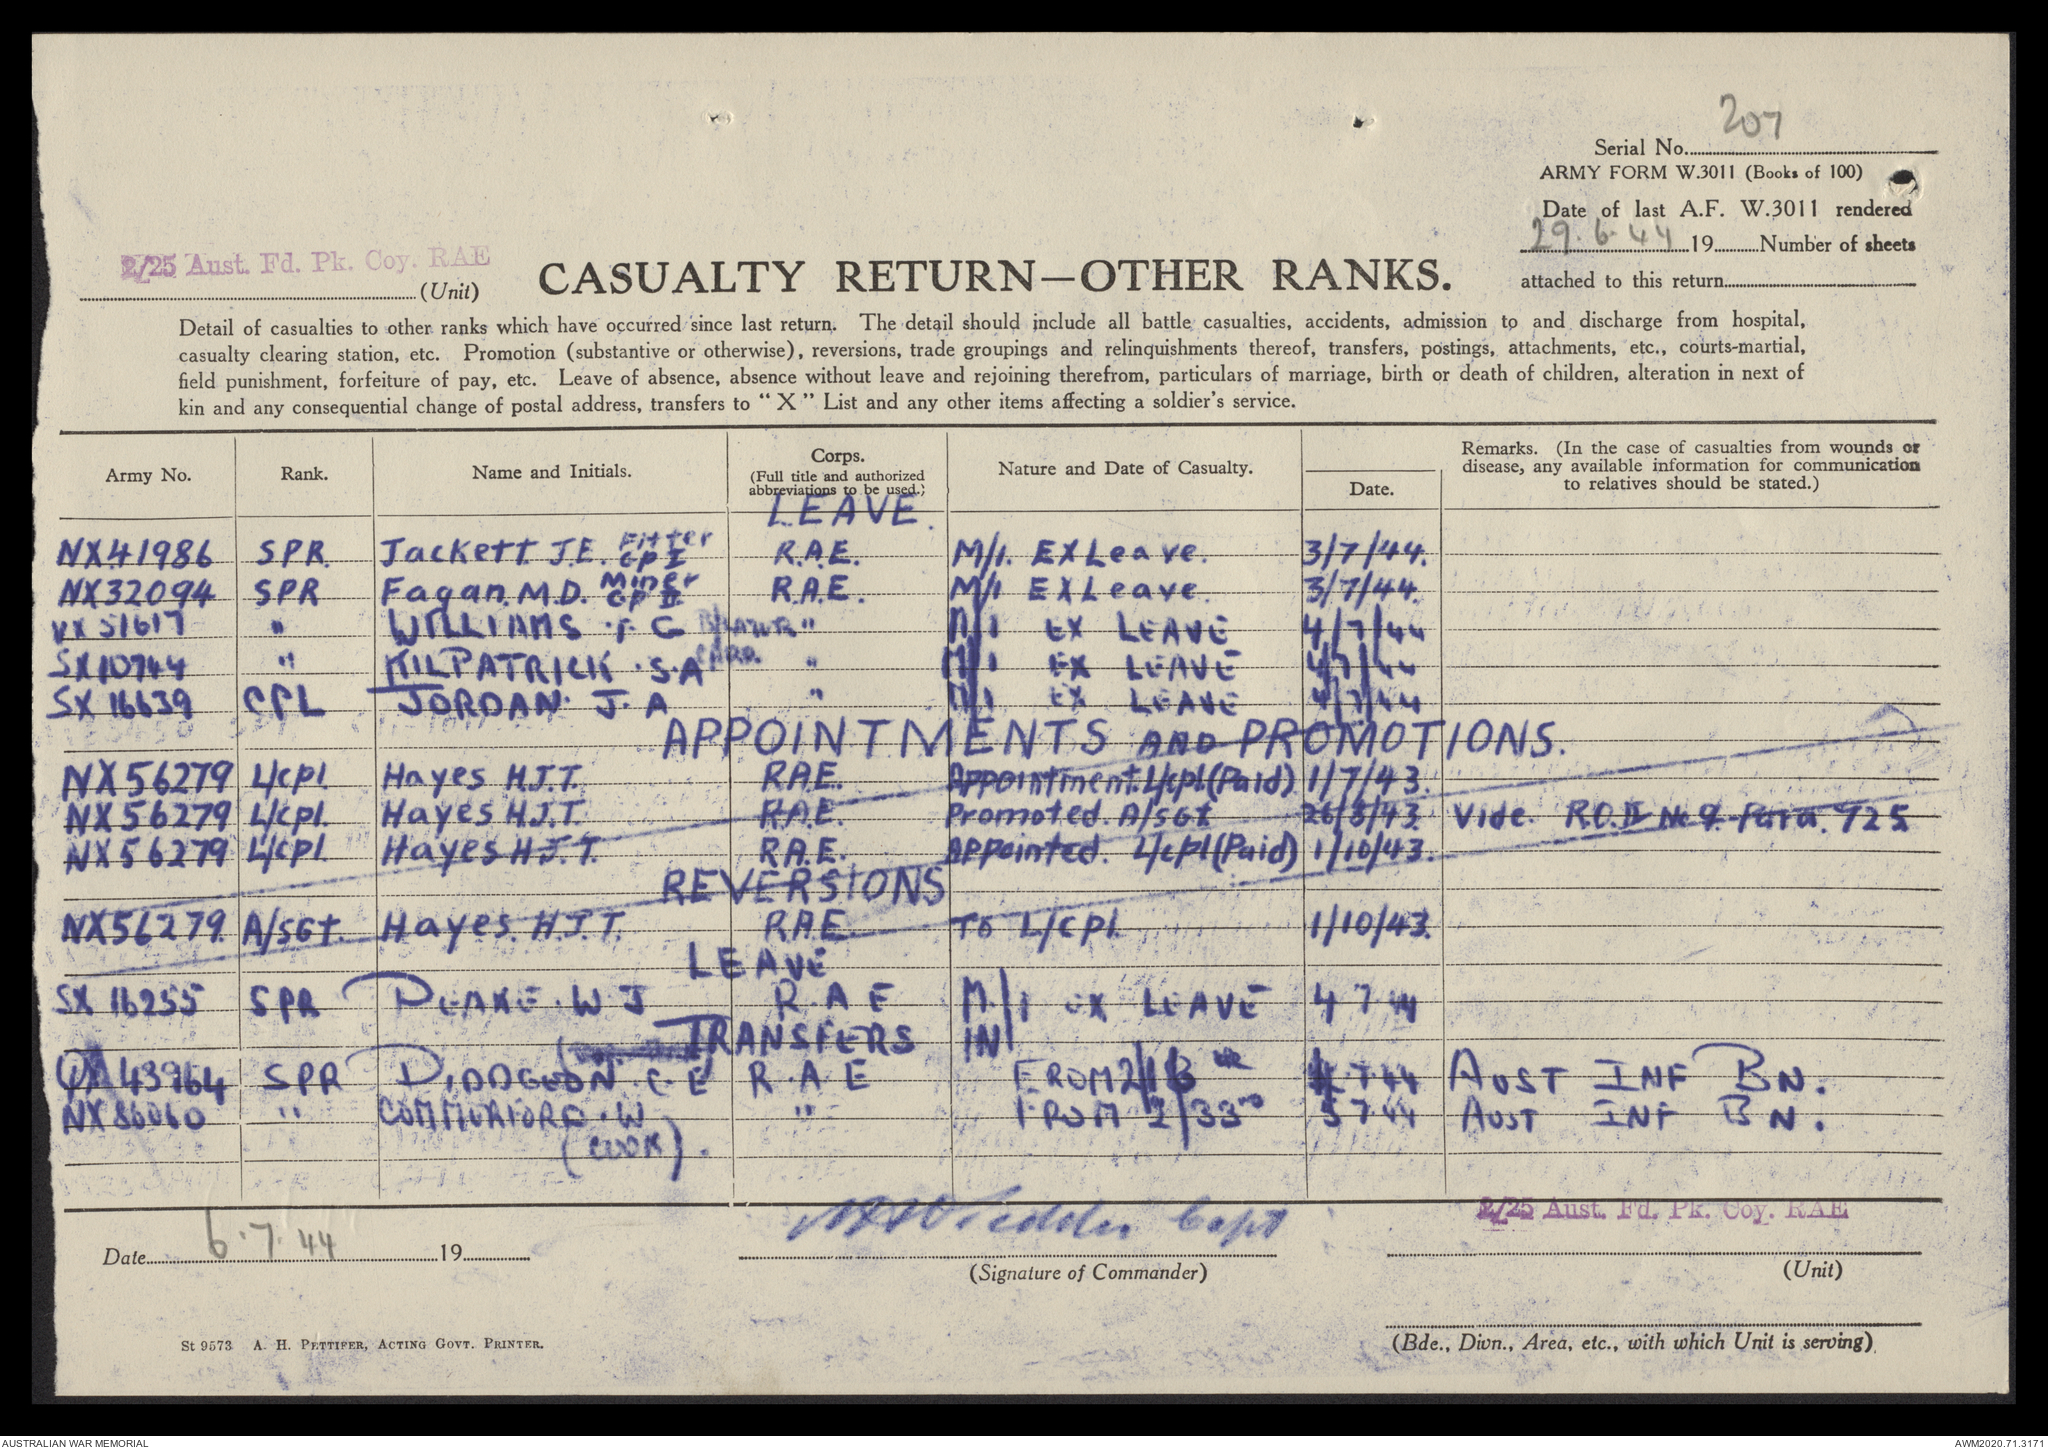 207
Serial No.
ARMY FORM W.3011 (Books of 100)
Date of last A.F. W.3011 rendered
29.6.44 19 Number of sheets
attached to this return
2/25 Aust. Fd. Pk. Coy. RAE
(Unit)
CASUALTY RETURN—OTHER RANKS.
Detail of casualties to other ranks which have occurred since last return. The detail should include all battle casualties, accidents, admission to and discharge from hospital,
casualty clearing station, etc. Promotion (substantive or otherwise), reversions, trade groupings and relinquishments thereof, transfers, postings, attachments, etc., courts-martial,
field punishment, forfeiture of pay, etc. Leave of absence, absence without leave and rejoining therefrom, particulars of marriage, birth or death of children, alteration in next of
kin and any consequential change of postal address, transfers to “ X ” List and any other items affecting a soldier's service.
Army No. Rank. Name and Initials. Corps. (Full title and authorized abbreviations to be used.) Nature and Date of Casualty. Date. Remarks. (In the case of casualties from wounds or disease, any available information for communication to relatives should be stated.)
LEAVE.
NX41986 SPR. Jackett J.E. Fitter GP I R.A.E. M/I. EX Leave. 3/7/44.
NX32094 SPR Fagan. M.D. Miner GP II R.A.E. M/I EX Leave. 3/7/44.
VX51617 " WILLIAMS . F C " M/I EX LEAVE 4/7/44
SX10744 " KILPATRICK . S.A " M/I EX LEAVE 4/7/44
SX 16639 CPL JORDAN. J. A " M/I EX LEAVE 4/7/44
APPOINTMENTS AND PROMOTIONS.
NX56279 L/cpl. Hayes H.J.T. R.A.E. Appointment. L/cpl (Paid) 1/7/43.
NX56279 L/cpl. Hayes H.J.T. R.A.E. Promoted. A/SGt 26/8/43. Vide. R.O. II No 9. Para. 725
NX56279 L/cpl. Hayes H.J.T. R.A.E. Appointed. L/cpl (Paid) 1/10/43.
REVERSIONS
NX56279. A/SGt. Hayes. H.J.T. R.A.E To L/Cpl. 1/10/43.
LEAVE
SX 16255 SPR DEAKE . W J R.A E M/I EX LEAVE 4 7 44
TRANSFERS IN
QX43964 SPR C E R.A E FROM 4 7 44 AUST INF BN.
NX86060 " W " FROM 2/33RD 5 7 44 AUST INF BN.
(COOK).
6.7.44
Date 19
Capt
(Signature of Commander)
2/25 Aust. Fd. Pk. Coy. RAE
(Unit)
(Bde., Divn., Area, etc., with which Unit is serving)
St 9573 A. H. PETTIFER, ACTING GOVT. PRINTER.
AUSTRALIAN WAR MEMORIAL
AWM2020.71.3171